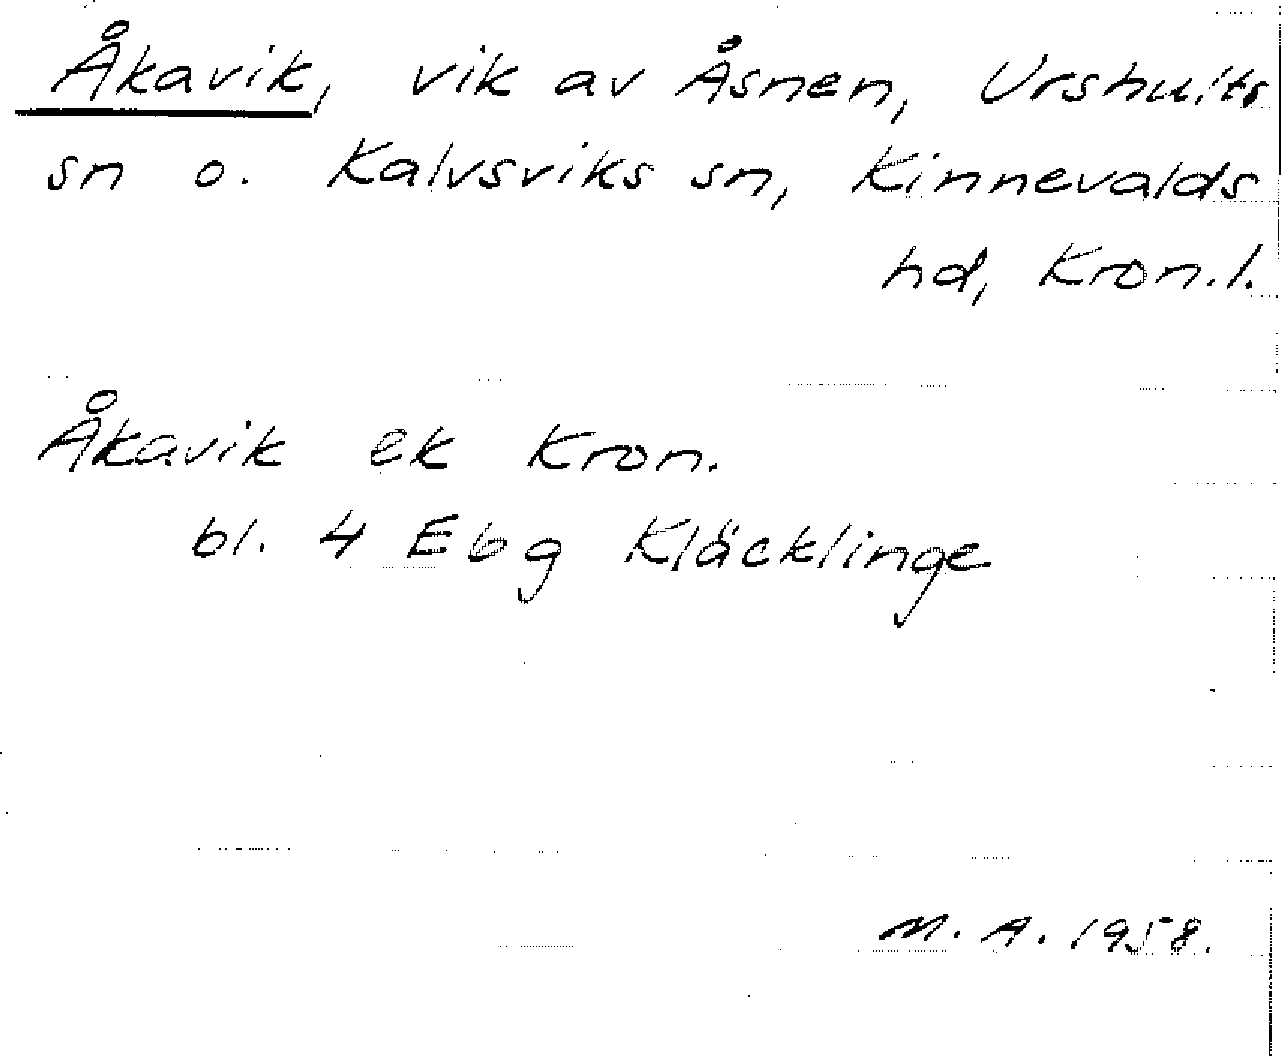 Åkavik, vik av Åsnen, Urshults
sn o. Kalvsviks sn, Kinnevalds
hd, Kron.l.
Åkavik ek Kron.
bl. 4 Ebg Kläcklinge
M. A. 1958.